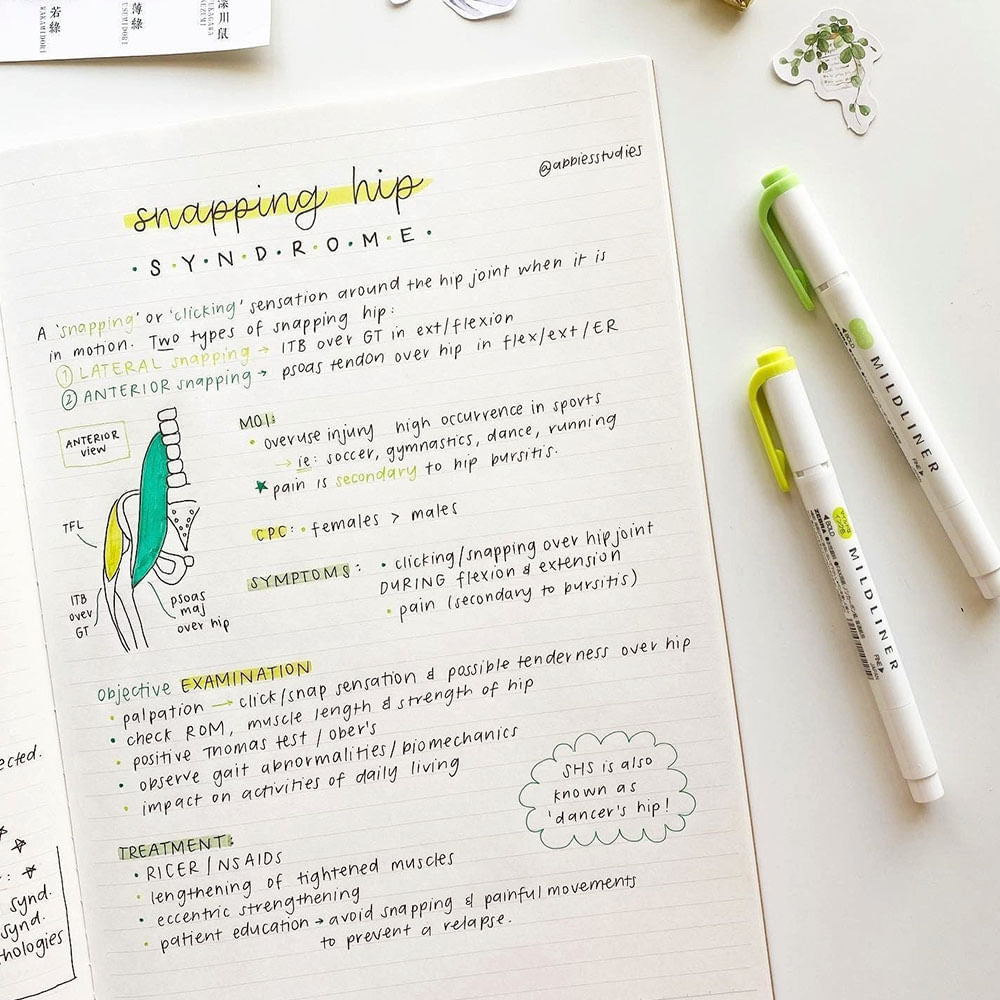 若綠
WAKAMIDORI
薄綠
USUMIDORI
深川鼠
@abbiesstudies
snapping hip
• S • Y • N • D • R • O • M • E •
A 'snapping' or 'clicking' sensation around the hip joint when it is
in motion. Two types of snapping hip:
① LATERAL snapping → ITB over GT in ext/flexion
② ANTERIOR snapping → psoas tendon over hip in flex/ext/ER
ANTERIOR
view
TFL
ITB
over
GT
psoas
maj
over hip
MOI:
• overuse injury high occurrence in sports
→ ie: soccer, gymnastics, dance, running
★ pain is secondary to hip bursitis.
CPC: • females > males
SYMPTOMS: • clicking/snapping over hip joint
DURING flexion & extension
• pain (secondary to bursitis)
Objective EXAMINATION
• palpation → click/snap sensation & possible tenderness over hip
• check ROM, muscle length & strength of hip
• positive Thomas test / ober's
• observe gait abnormalities/biomechanics
• impact on activities of daily living
SHS is also
known as
'dancer's hip!
TREATMENT:
• RICER/NSAIDS
• lengthening of tightened muscles
• eccentric strengthening
• patient education → avoid snapping & painful movements
to prevent a relapse.
ected.
:
synd.
synd.
hologies
BOLD MILDLINER FINE
BOLD MILDLINER FINE